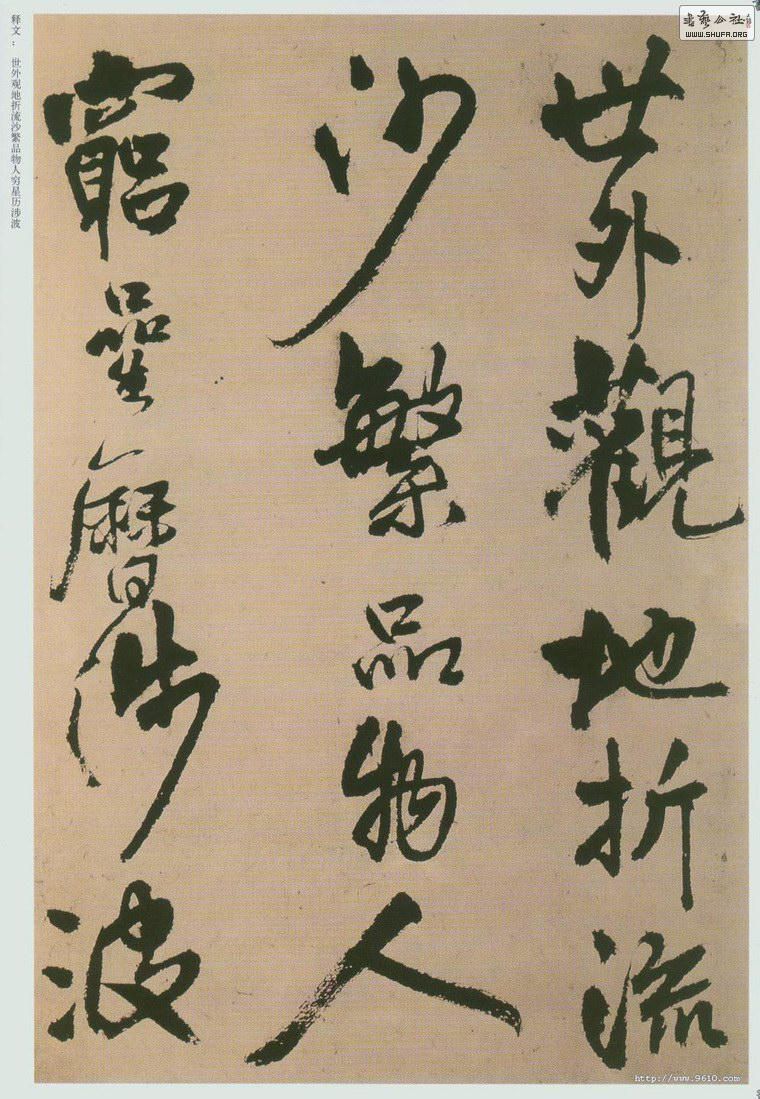 世外觀地折流
沙繁品物人
窮星曆涉波
释文： 世外观地折流沙繁品物人穷星历涉波
WWW.SHUFA.ORG
http://www.9610.com